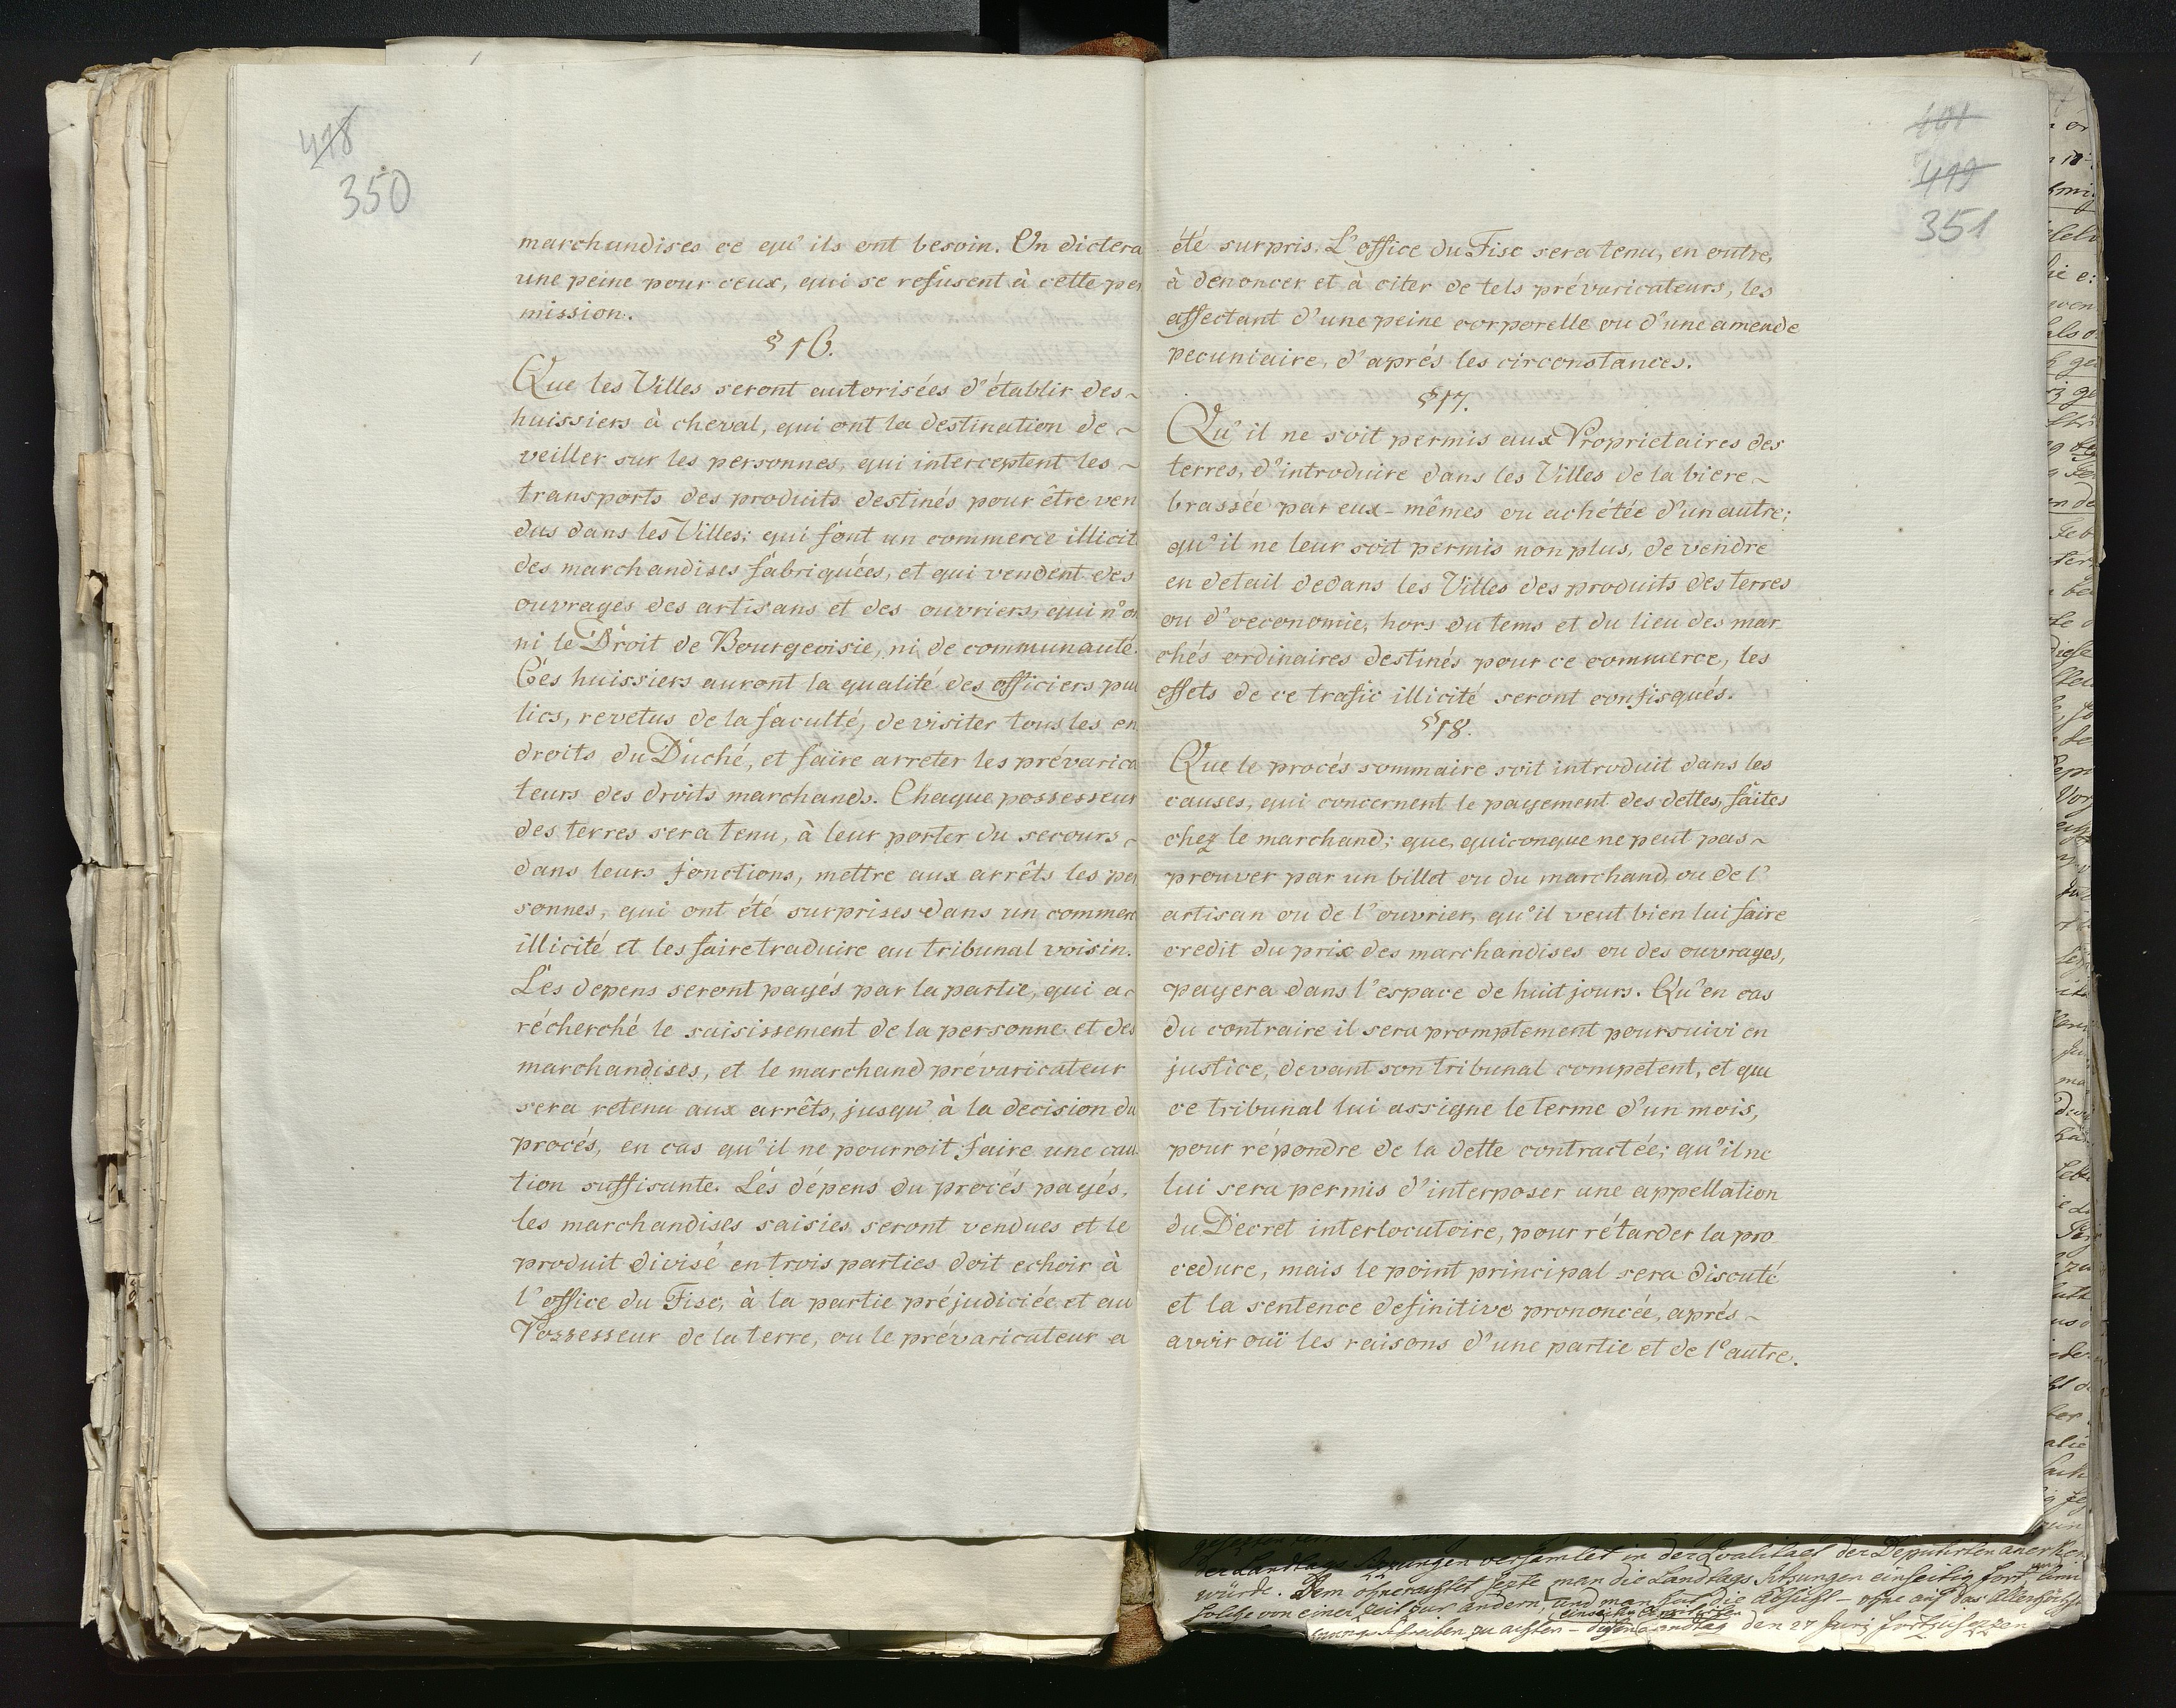 418
350
marchandises ce qu'ils ont besoin. On dictera
une peine pour ceux, qui se refusent à cette per
mission.
§ 16.
Que les Villes seront autorisées d'établir des ~
huissiers à cheval, qui ont la destination de ~
veiller sur les personnes, qui interceptent les ~
transports des produits destinés pour être ven
dus dans les Villes; qui font un commerce illicit
des marchandises fabriquées, et qui vendent des
ouvrages des artisans et des ouvriers, qui n'o
ni le Droit de Bourgeoisie, ni de communauté.
Cés huissiers auront la qualité des officiers pu
lics, revetus de la faculté, de visiter tous les en
droits du Duché, et faire arreter les prévarica
teurs des droits marchands. Chaque possesseur
des terres sera tenu, à leur porter du secours ~
dans leurs fonctions, mettre aux arrêts les per
sonnes, qui ont été surprises dans un commerc
illicité et les faire traduire au tribunal voisin.
Lés depens seront payés par la partie, qui a ~
récherché le saisissement de la personne et des
marchandises, et le marchand prévaricateur
sera retenu aux arrêts, jusqu'à la decision du
procés, en cas qu'il ne pourroit faire une cau
tion suffisante. Lés dépens du procés payés,
les marchandises saisies seront vendues et le
produit divisé en trois parties doit echoir à
l'office du Fisc, à la partie préjudiciée et au
Possesseur de la terre, ou le prévaricateur a
401
419
351
été surpris. L'office du Fisc sera tenu, en outre,
à denoncer et à citer de tels prévaricateurs, les
affectant d'une peine corporelle ou d'une amende
pecuniaire, d'aprés les circonstances.
§ 17.
Qu'il ne soit permis aux Proprietaires des
terres, d'introduire dans les Villes de la biere ~
brassée par eux-mêmes ou achétée d'un autre;
qu'il ne leur soit permis non plus, de vendre
en detail dedans les Villes des produits des terres
ou d'oeconomie, hors du tems et du lieu des mar
chés ordinaires destinés pour ce commerce, les
effets de ce trafic illicité seront confisqués.
§ 18.
Que le procés sommaire soit introduit dans les
causes, qui concernent le payement des dettes, faites
chez le marchand; que, quiconque ne peut pas ~
prouver par un billet ou du marchand, ou de l'
artisan ou de l'ouvrier, qu'il veut bien lui faire
credit du prix des marchandises ou des ouvrages,
payera dans l'espace de huit jours. Qu'en cas
du contraire il sera promptement poursuivi en
justice, devant son tribunal competent, et que
ce tribunal lui assigne le terme d'un mois,
pour répondre de la dette contractée; qu'il ne
lui sera permis d'interposer une appellation
du Decret interlocutoire, pour rétarder la pro
cedure, mais le point principal sera discuté
et la sentence definitive prononcée, aprés ~
avoir ouï les raisons d'une partie et de l'autre.
der Landtags Sitzungen versamlet in der Qualitaet der Deputirten anerken
würde. Dem ohnerachtet sezte man die Landtags Sitzungen einseitig fort
solche von einer Zeit zur andern, und man hat die Absicht - ohne auf das Allerhöchste
zu achten - diesen Landtag den 27 Junij fortzusezzen